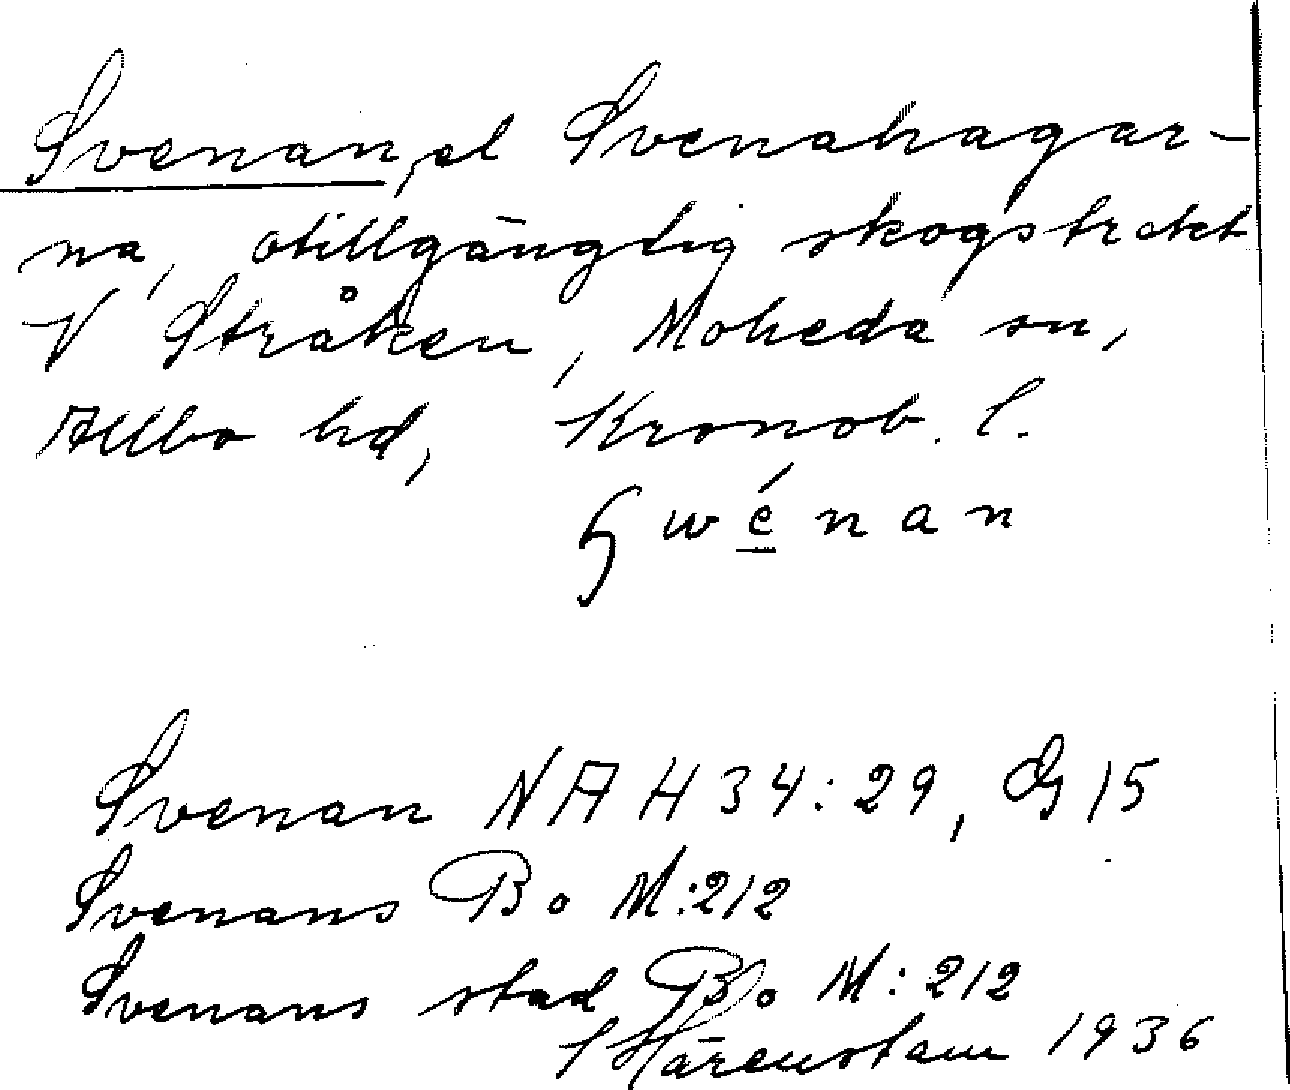 Svenan, el Svenahagar-
na, otillgänglig skogstrakt
V Stråken, Moheda sn,
Allbo hd, Kronob. l.
Swénan
Svenan NAH34:29, G15
Svenans Bo M:212
Svenans stad Bo M:212
Härenstam 1936